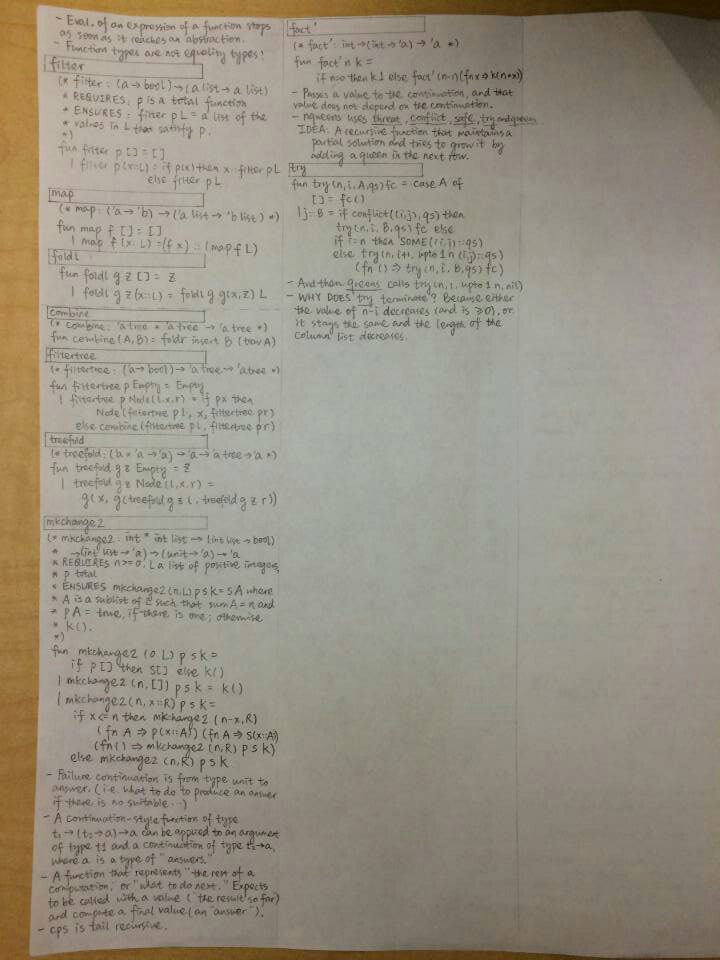 - Eval. of an expression of a function stops
as soon as it reaches an abstraction.
- Function types are not equality types!
filter
(* filter: ('a → bool) → ('a list → 'a list)
* REQUIRES: p is a total function
* ENSURES: filter p L = a list of the
* values in L that satisfy p.
*)
fun filter p [] = []
| filter p (x::L) = if p(x) then x::filter p L
else filter p L
map
(* map: ('a → 'b) → ('a list → 'b list) *)
fun map f [] = []
| map f (x::L) = (f x) :: (map f L)
foldl
fun foldl g z [] = z
| foldl g z (x::L) = foldl g g(x,z) L
combine
(* combine: 'a tree * 'a tree → 'a tree *)
fun combine (A,B) = foldr insert B (trav A)
filtertree
(* filtertree: ('a → bool) → 'a tree → 'a tree *)
fun filtertree p Empty = Empty
| filtertree p Node(l,x,r) = if p x then
Node (filtertree p l, x, filtertree p r)
else combine (filtertree p l, filtertree p r)
treefold
(* treefold: ('a * 'a → 'a) → 'a → 'a tree → 'a *)
fun treefold g z Empty = z
| treefold g z Node(l,x,r) =
g(x, g(treefold g z l, treefold g z r))
mkchange2
(* mkchange2: int * int list → (int list → bool)
* → (int list → 'a) → (unit → 'a) → 'a
* REQUIRES n>=0, L a list of positive integers,
* p total
* ENSURES mkchange2 (n,L) p s k = s A where
* A is a sublist of L such that sum A = n and
* p A = true, if there is one; otherwise
* k().
*)
fun mkchange2 (0 L) p s k =
if p [] then s[] else k()
| mkchange2 (n, []) p s k = k()
| mkchange2 (n, x::R) p s k =
if x <= n then mkchange2 (n-x, R)
(fn A ⇒ p(x::A)) (fn A ⇒ s(x::A))
(fn () ⇒ mkchange2 (n,R) p s k)
else mkchange2 (n,R) p s k
- Failure continuation is from type unit to
answer. (i.e. what to do to produce an answer
if there is no suitable ...)
- A continuation-style function of type
t₁ → (t₂ → a) → a can be applied to an argument
of type t1 and a continuation of type t₂→a,
where a is a type of "answers."
- A function that represents "the rest of a
computation," or "what to do next." Expects
to be called with a value ("the result" so far)
and compute a final value (an "answer").
- cps is tail recursive.
fact'
(* fact': int → (int → 'a) → 'a *)
fun fact' n k =
if n=0 then k 1 else fact' (n-1) (fn x ⇒ k(n*x))
- Passes a value to the continuation, and that
value does not depend on the continuation.
- nqueens uses threat, conflict, safe, try and queens
IDEA: A recursive function that maintains a
partial solution and tries to grow it by
adding a queen in the next row.
try
fun try (n, i, A, qs) fc = case A of
[] = fc()
| j::B = if conflict ((i,j), qs) then
try (n, i, B, qs) fc else
if i = n then SOME ((i,j)::qs)
else try (n, i+1, upto 1 n, (i,j)::qs)
(fn () ⇒ try (n, i, B, qs) fc)
- And then queens calls try (n, 1, upto 1 n, nil)
- WHY DOES try terminate? Because either
the value of n-i decreases (and is ≥0), or
it stays the same and the length of the
column list decreases.